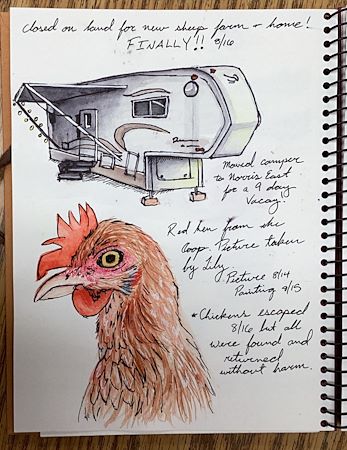 Closed on land for new sheep farm + home!
FINALLY!! 8/16
Moved camper
to Norris East
for a 9 day
Vacay.
Red hen from the
coop. Picture taken
by Lily
Picture 8/14
Painting 8/15
* Chickens escaped
8/16 but all
were found and
returned
without harm.